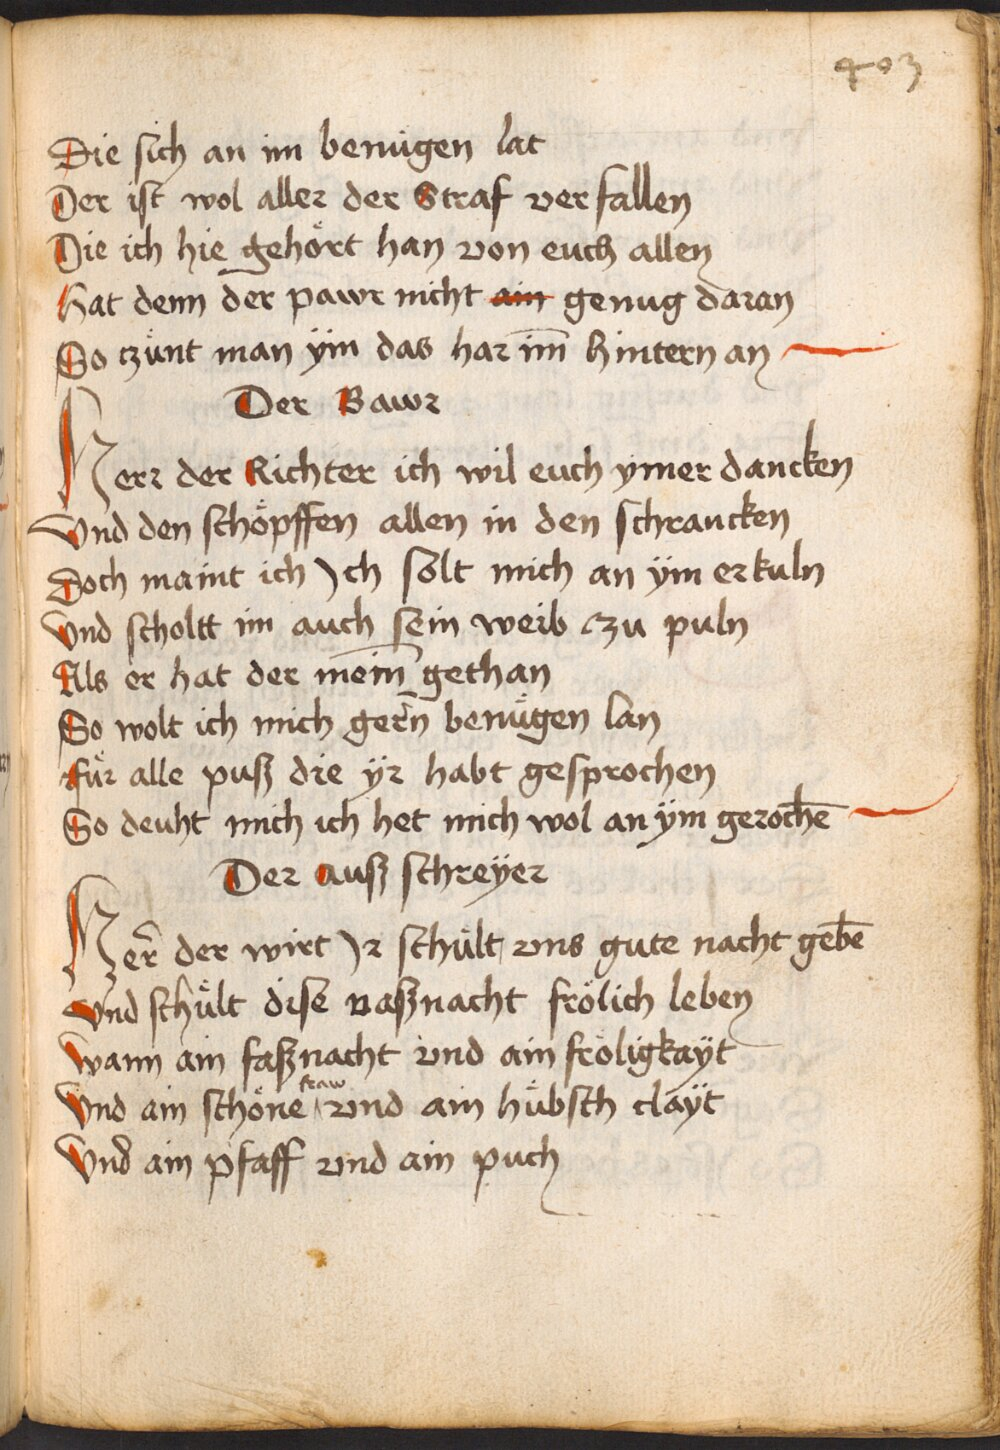 403
Die sich an im benügen lat
Der ist wol aller der Straf verfallen
Die ich hie gehört han von euch allen
Hat denn der pawr nicht ain genug daran
So tzünt man ÿm das har im̄ hintern an
Der Bawr
Herr der Richter ich wil euch ymer dancken
Vnd den schöpffen allen in den schrancken
Doch maint ich Ich solt mich an ÿm erkuln
Vnd scholtt im auch sein weib czu puln
Als er hat der mein̄ gethan
So wolt ich mich gern̄ benügen lan
für alle puß die ÿr habt gesprochen
So deuht mich ich het mich wol an ÿm gerochē
Der auß schreÿer
Her̄ der wirt Ir schült vns gute nacht gebē
Vnd schült dise vaßnacht frölich leben
wann ain faßnacht vnd ain fröligkaÿt
Vnd ain schöne fraw vnd ain hübsch claÿt
Vnd ain pfaff vnd ain puch